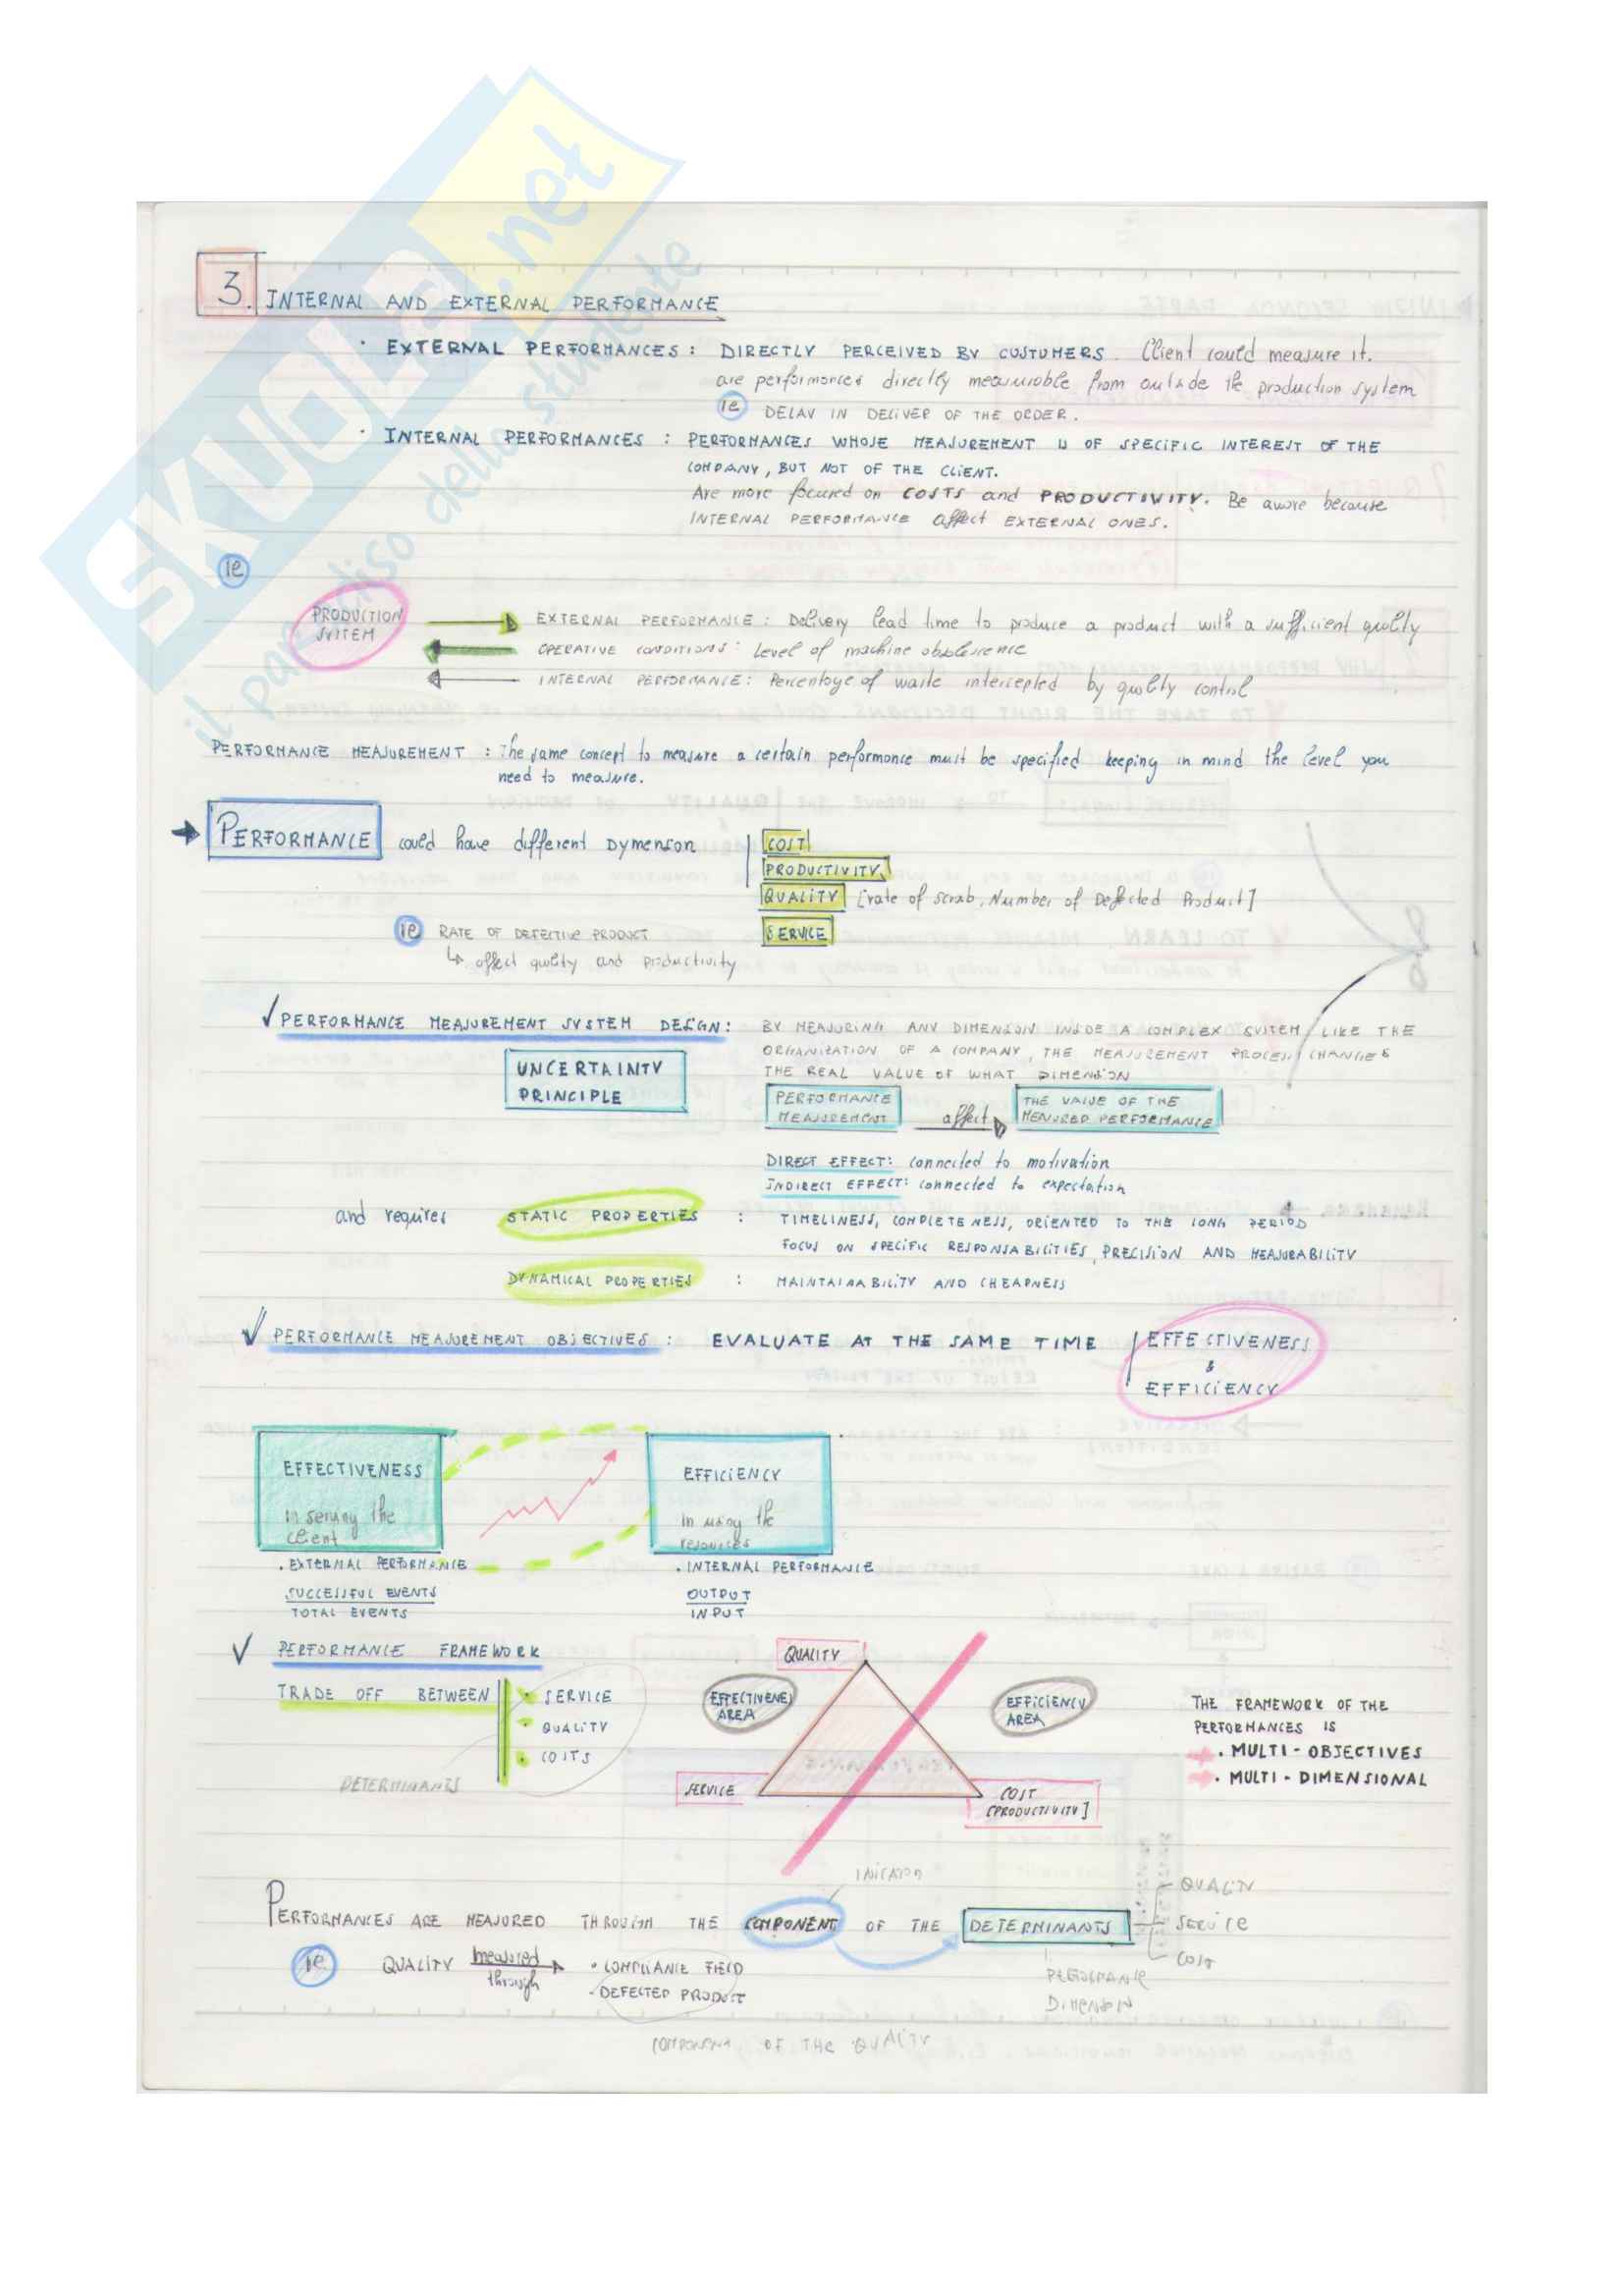 SKUOLA.net
il paradiso dello studente
3. INTERNAL AND EXTERNAL PERFORMANCE
· EXTERNAL PERFORMANCES : DIRECTLY PERCEIVED BY CUSTUMERS. Client could measure it.
are performances directly measurable from outside the production system
ie DELAY IN DELIVER OF THE ORDER.
· INTERNAL PERFORMANCES : PERFORMANCES WHOSE MEASUREMENT IS OF SPECIFIC INTEREST OF THE
COMPANY, BUT NOT OF THE CLIENT.
Are more focused on COSTS and PRODUCTIVITY. Be aware because
INTERNAL PERFORMANCE affect EXTERNAL ONES.
ie
PRODUCTION
SYSTEM
EXTERNAL PERFORMANCE : Delivery lead time to produce a product with a sufficient quality
OPERATIVE CONDITIONS : Level of machine obsolescence
INTERNAL PERFORMANCE : Percentage of waste intercepted by quality control
PERFORMANCE MEASUREMENT : The same concept to measure a certain performance must be specified keeping in mind the level you
need to measure.
PERFORMANCE could have different Dymenson
COST
PRODUCTIVITY
QUALITY [rate of scrab, Number of Defected Product]
SERVICE
ie RATE OF DEFECTIVE PRODUCT
↳ affect quality and productivity
✓ PERFORMANCE MEASUREMENT SYSTEM DESIGN : BY MEASURING ANY DIMENSION INSIDE A COMPLEX SYSTEM, LIKE THE
ORGANIZATION OF A COMPANY, THE MEASUREMENT PROCESS CHANGES
THE REAL VALUE OF WHAT DIMENSION
UNCERTAINTY
PRINCIPLE
PERFORMANCE
MEASUREMENT
affect
THE VALUE OF THE
MENSURED PERFORMANCE
DIRECT EFFECT : connected to motivation
INDIRECT EFFECT : connected to expectation
and requires STATIC PROPERTIES : TIMELINESS, COMPLETENESS, ORIENTED TO THE LONG PERIOD
FOCUS ON SPECIFIC RESPONSABILITIES, PRECISION AND MEASURABILITY
DYNAMICAL PROPERTIES : MAINTAINABILITY AND CHEAPNESS
✓ PERFORMANCE MEASUREMENT OBJECTIVES : EVALUATE AT THE SAME TIME
EFFECTIVENESS
&
EFFICIENCY
EFFECTIVENESS
in serving the
client
EFFICIENCY
in using the
resources
. EXTERNAL PERFORMANCE
SUCCESSFUL EVENTS
TOTAL EVENTS
. INTERNAL PERFORMANCE
OUTPUT
INPUT
✓ PERFORMANCE FRAMEWORK
TRADE OFF BETWEEN
· SERVICE
· QUALITY
· COSTS
DETERMINANTS
QUALITY
EFFECTIVENES
AREA
EFFICIENCY
AREA
SERVICE
COST
[PRODUCTIVITY]
THE FRAMEWORK OF THE
PERFORMANCES IS
. MULTI-OBJECTIVES
. MULTI-DIMENSIONAL
PERFORMANCES ARE MEASURED THROUGH THE COMPONENT OF THE DETERMINANTS
QUALITY
SERVICE
COST
PERFORMANCE
DIMENSION
ie QUALITY measured
through
· COMPLIANCE FIELD
- DEFECTED PRODUCT
OF THE QUALITY